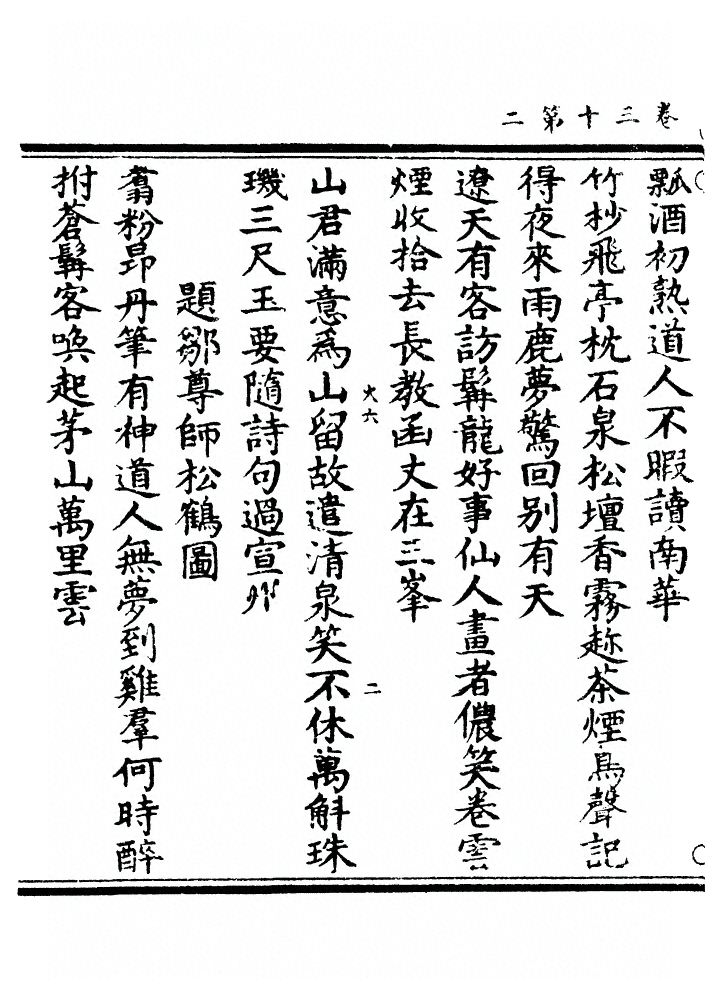 卷三十第二
瓢酒初熟道人不暇讀南華
竹杪飛亭枕石泉松壇香霧趂茶煙鳥聲記
得夜來雨鹿夢驚回别有天
遼天有客訪髯龍好事仙人畫者儂笑卷雲
煙收拾去長教函丈在三峯
火六
二
山君滿意爲山留故遣清泉笑不休萬斛珠
璣三尺玉要隨詩句過宣州
題鄒尊師松鶴圖
翥粉昂丹筆有神道人無夢到雞羣何時醉
拊蒼髯客喚起茅山萬里雲